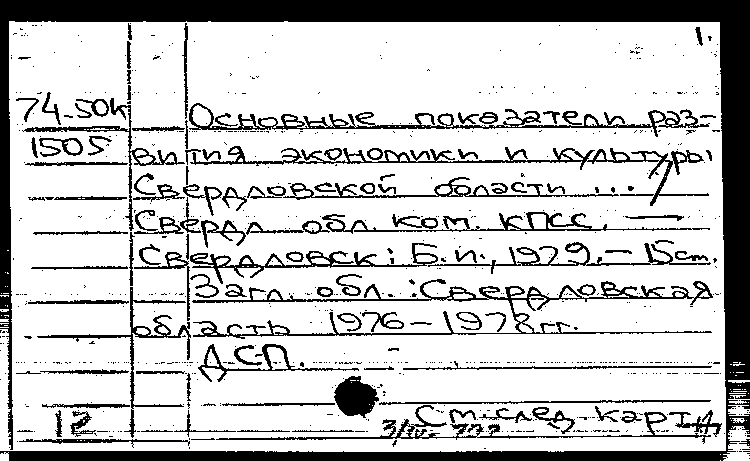 1.
74-50к Основные показатели раз-
1505 вития экономики и культуры
Свердловской области ... /
Свердл обл. ком. КПСС. —
Свердловск : Б.и., 1979. — 15 см.
Загл. обл. : Свердловская
область 1976 – 1978 гг.
ДСП.
12 См. след. карт